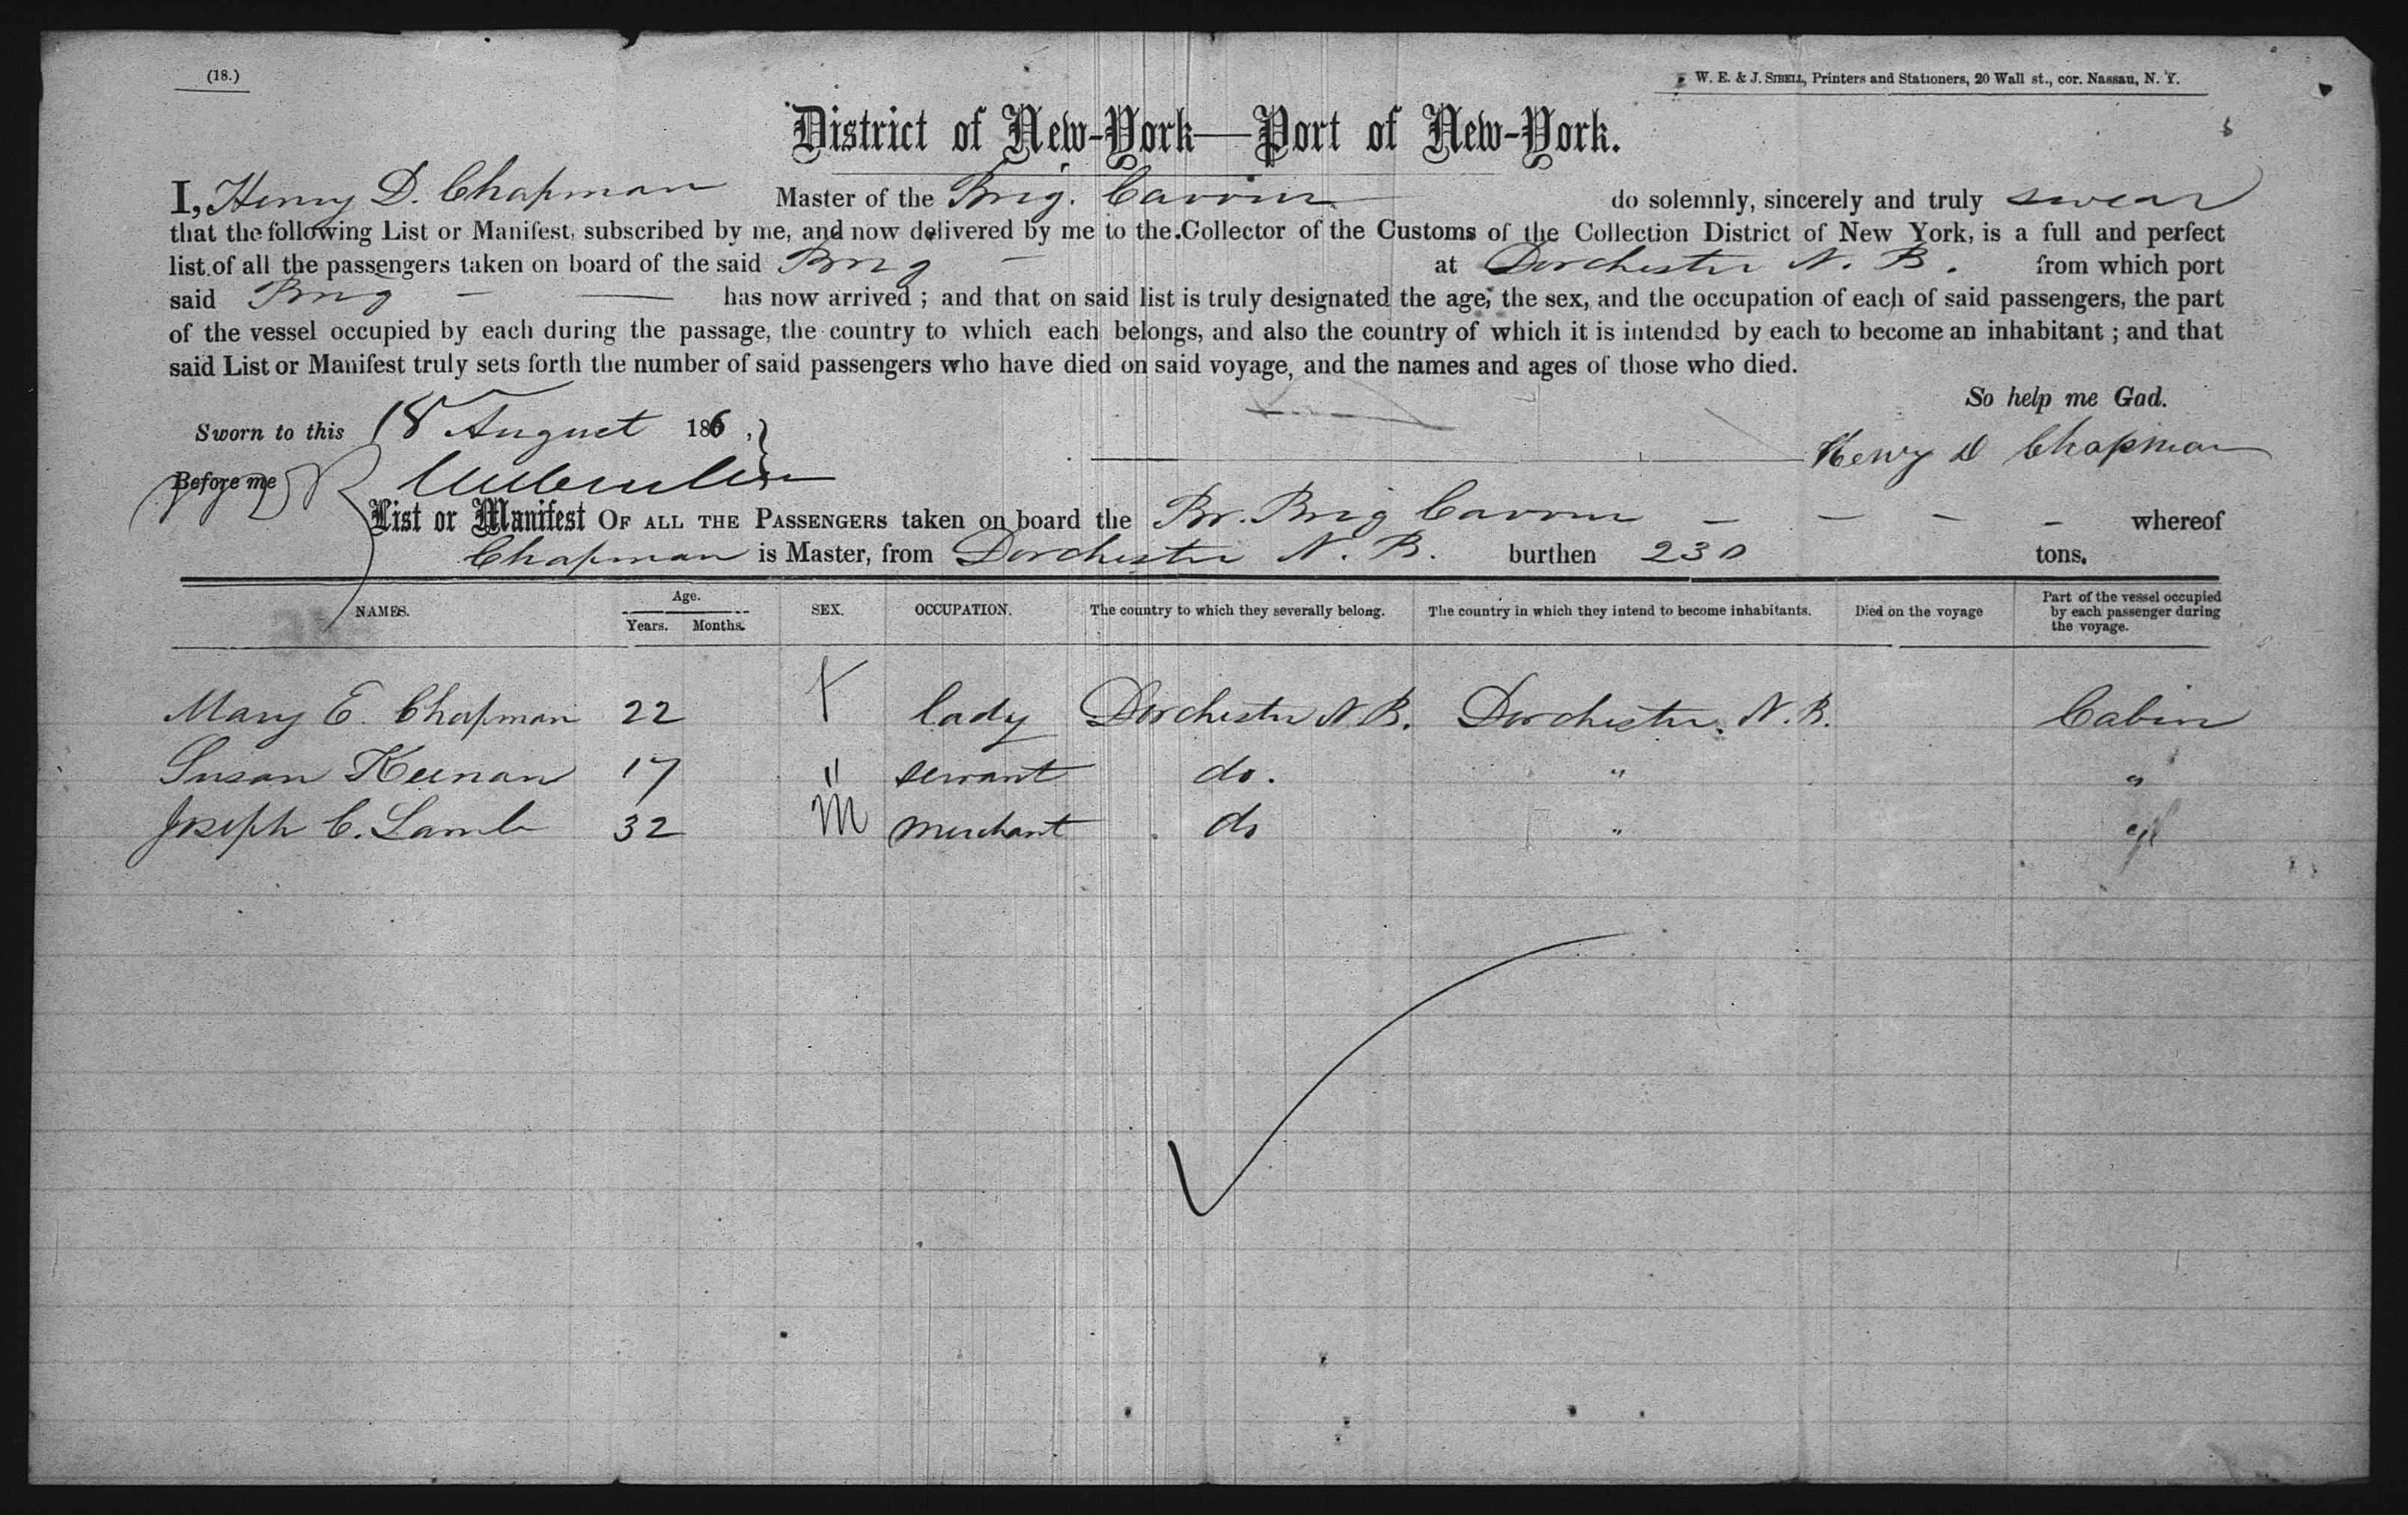 (18.)
W. E. & J. SIBELL, Printers and Stationers, 20 Wall st., cor. Nassau, N. Y.
District of New-York—Port of New-York.
I, Henry D. Chapman Master of the Brig. do solemnly, sincerely and truly swear
that the following List or Manifest, subscribed by me, and now delivered by me to the Collector of the Customs of the Collection District of New York, is a full and perfect
list of all the passengers taken on board of the said Brig at Dorchester N. B. from which port
said Brig has now arrived ; and that on said list is truly designated the age, the sex, and the occupation of each of said passengers, the part
of the vessel occupied by each during the passage, the country to which each belongs, and also the country of which it is intended by each to become an inhabitant ; and that
said List or Manifest truly sets forth the number of said passengers who have died on said voyage, and the names and ages of those who died.
So help me God.
Sworn to this 18 August 186 ,
Henry D Chapman
Before me
List or Manifest OF ALL THE PASSENGERS taken on board the Br. Brig whereof
Chapman is Master, from Dorchester N. B. burthen 230 tons.
NAMES. Age. Years. Months. SEX. OCCUPATION. The country to which they severally belong. The country in which they intend to become inhabitants. Died on the voyage Part of the vessel occupied by each passenger during the voyage.
Mary E. Chapman 22 f lady Dorchester N B. Dorchester. N. B. Cabin
Susan Keenan 17 " servant do. " "
Joseph C. Lamb 32 M merchant do " "